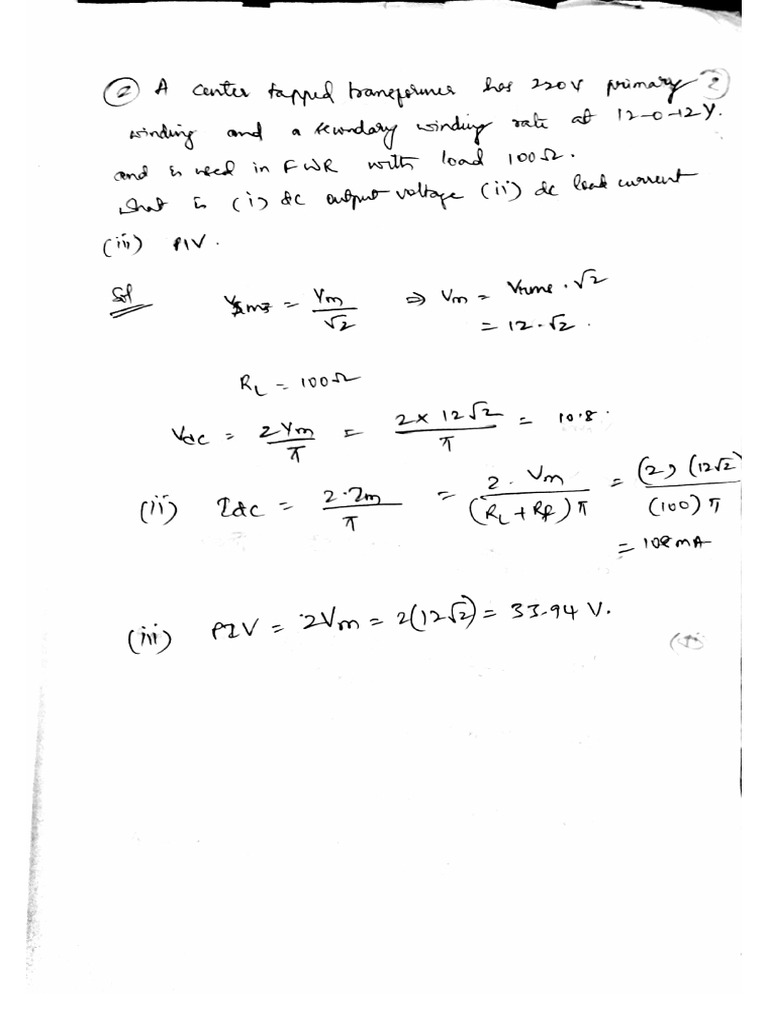 ② A center tapped transformer has 220V primary 2
winding and a secondary winding rate at 12-0-12V.
and is used in FWR with load 100Ω.
what is (i) dc output voltage (ii) dc load current
(iii) PIV.
Sol
Vrms = Vm/√2 ⇒ Vm = Vrms . √2
= 12 . √2 .
RL = 100Ω
Vdc = 2Vm/π = 2 × 12√2/π = 10.8 .
(ii) Idc = 2.Im/π = 2 . Vm/(RL + Rf) π = (2) (12√2)/(100) π
= 108 mA
(iii) PIV = 2Vm = 2(12√2) = 33.94 V.